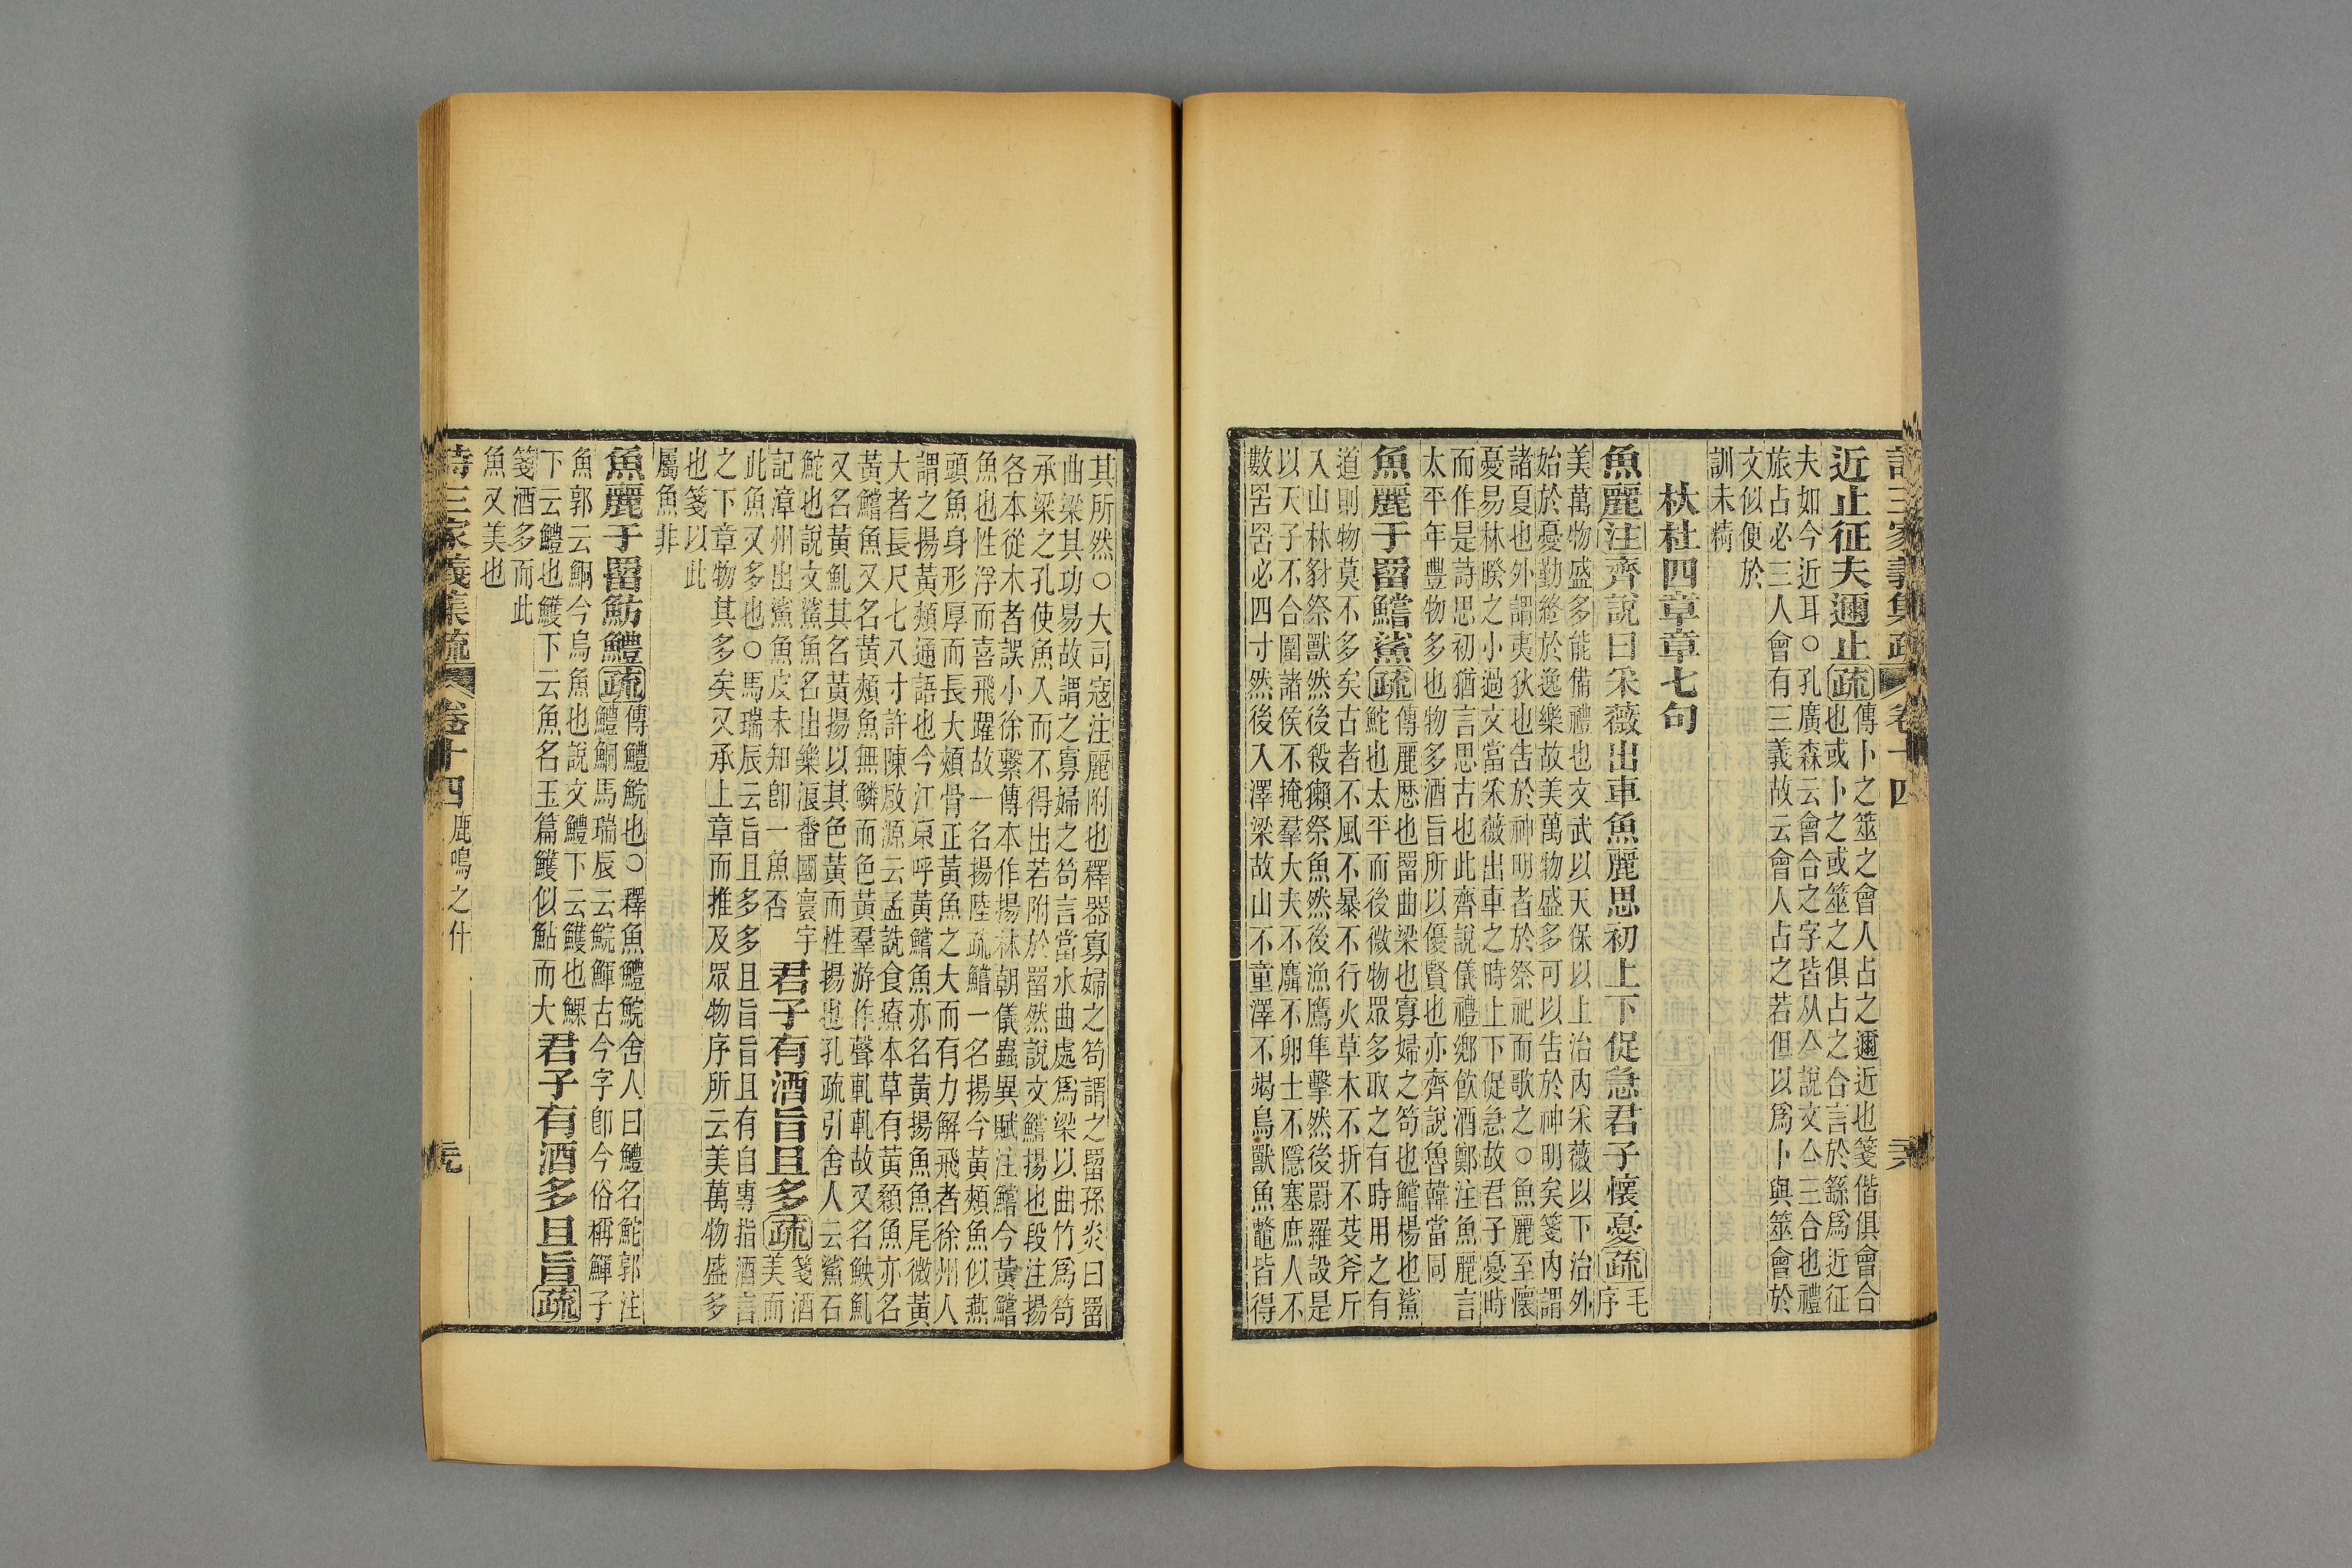 詩三家義集疏 卷十四
近止征夫邇止疏
傳卜之筮之會人占之邇近也箋偕俱會合
也或卜之或筮之俱占之合言於繇爲近征
夫如今近耳○孔廣森云會合之字皆从亼說文亼三合也禮
旅占必三人會有三義故云會人占之若但以爲卜與筮會於
文似便於
訓未精
杕杜四章章七句
魚麗注齊說曰采薇出車魚麗思初上下促急君子懷憂疏
毛
序
美萬物盛多能備禮也文武以天保以上治内采薇以下治外
始於憂勤終於逸樂故美萬物盛多可以告於神明矣箋内謂
諸夏也外謂夷狄也告於神明者於祭祀而歌之○魚麗至懷
憂易林睽之小過文當采薇出車之時上下促急故君子憂時
而作是詩思初猶言思古也此齊說儀禮鄉飲酒鄭注魚麗言
太平年豐物多也物多酒旨所以優賢也亦齊說魯韓當同
魚麗于罶鱨鯊疏
傳麗歷也罶曲梁也寡婦之笱也鱨楊也鯊
鮀也太平而後微物眾多取之有時用之有
道則物莫不多矣古者不風不暴不行火草木不折不芟斧斤
入山林豺祭獸然後殺獺祭魚然後漁鷹隼擊然後罻羅設是
以天子不合圍諸侯不掩羣大夫不麛不卵士不隱塞庶人不
數罟罟必四寸然後入澤梁故山不童澤不竭鳥獸魚鼈皆得
其所然○大司寇注麗附也釋器寡婦之笱謂之罶孫炎曰罶
曲梁其功易故謂之寡婦之笱言當水曲處爲梁以曲竹爲笱
承梁之孔使魚入而不得出若附於罶然說文鱨揚也段注揚
各本從木者誤小徐繫傳本作揚林朝儀蟲異賦注鱨今黃鱨
魚也性浮而喜飛躍故一名揚陸疏鱨一名揚今黃頰魚似燕
頭魚身形厚而長大頰骨正黃魚之大而有力解飛者徐州人
謂之揚黃頰通語也今江東呼黃鱨魚亦名黃揚魚魚尾微黃
大者長尺七八寸許陳啟源云孟詵食療本草有黃顙魚亦名
黃鱨魚又名黃頰魚無鱗而色黃羣游作聲軋軋故又名鰍䰲
又名黃䰲其名黃揚以其色黃而性揚也孔疏引舍人云鯊石
鮀也說文鯊魚名出樂浪番國寰宇
記漳州出鯊魚皮未知卽一魚否
君子有酒旨且多疏
箋酒
美而
此魚又多也○馬瑞辰云旨且多多且旨旨且有自專指酒言
之下章物其多矣又承上章而推及眾物序所云美萬物盛多
也箋以此
屬魚非
魚麗于罶魴鱧疏
傳鱧鯇也○釋魚鱧鯇舍人曰鱧名鮀郭注
鱧鮦馬瑞辰云鯇鯶古今字卽今俗稱鯶子
魚郭云鮦今烏魚也說文鱧下云鱯也鰥
下云鱧也鱯下云魚名玉篇鱯似鮎而大
君子有酒多且旨疏
箋酒多而此
魚又美也
詩三家義集疏 卷十四 鹿鳴之什